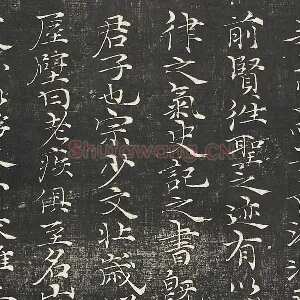 前賢往聖之迹有以
律之氣中記之書既
君子也宗少文壯歲
屋壁曰老疾俱至名山
Shufawang.CN